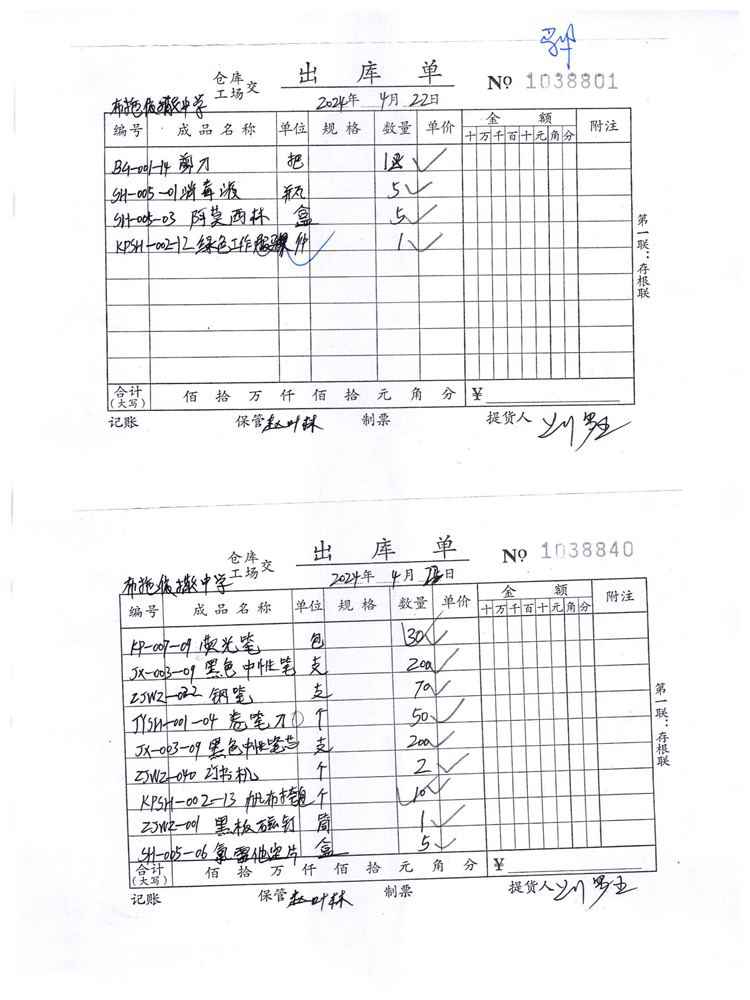 仓库
工场 交 出库单 № 1038801
2024年 4月 22日
中学
编号 成品名称 单位 规格 数量 单价 金额 附注
十万千百十元角分
BG-001-14 剪刀 把
SH-005-01 消毒液 瓶 5
SH-005-03 阿莫西林 盒 5
KPSH-002-12 绿色工作服 件 1
合计
(大写) 佰拾万仟佰拾元角分 ¥
记账 保管 赵叶林 制票 提货人
第一联：存根联
仓库
工场 交 出库单 № 1038840
2024年 4月 日
中学
编号 成品名称 单位 规格 数量 单价 金额 附注
十万千百十元角分
KP-007-09 荧光笔 包 30
JX-003-09 黑色中性笔 支 200
ZJWZ-022 钢笔 支 70
JYSH-001-04 卷笔刀 个 50
JX-003-09 黑色中性笔芯 支 200
ZJWZ-040 订书机 个 2
KPSH-002-13 帆布 个 10
ZJWZ-001 黑板磁钉 筒 1
SH-005-06 氯雷他定片 盒 5
合计
(大写) 佰拾万仟佰拾元角分 ¥
记账 保管 赵叶林 制票 提货人
第一联：存根联